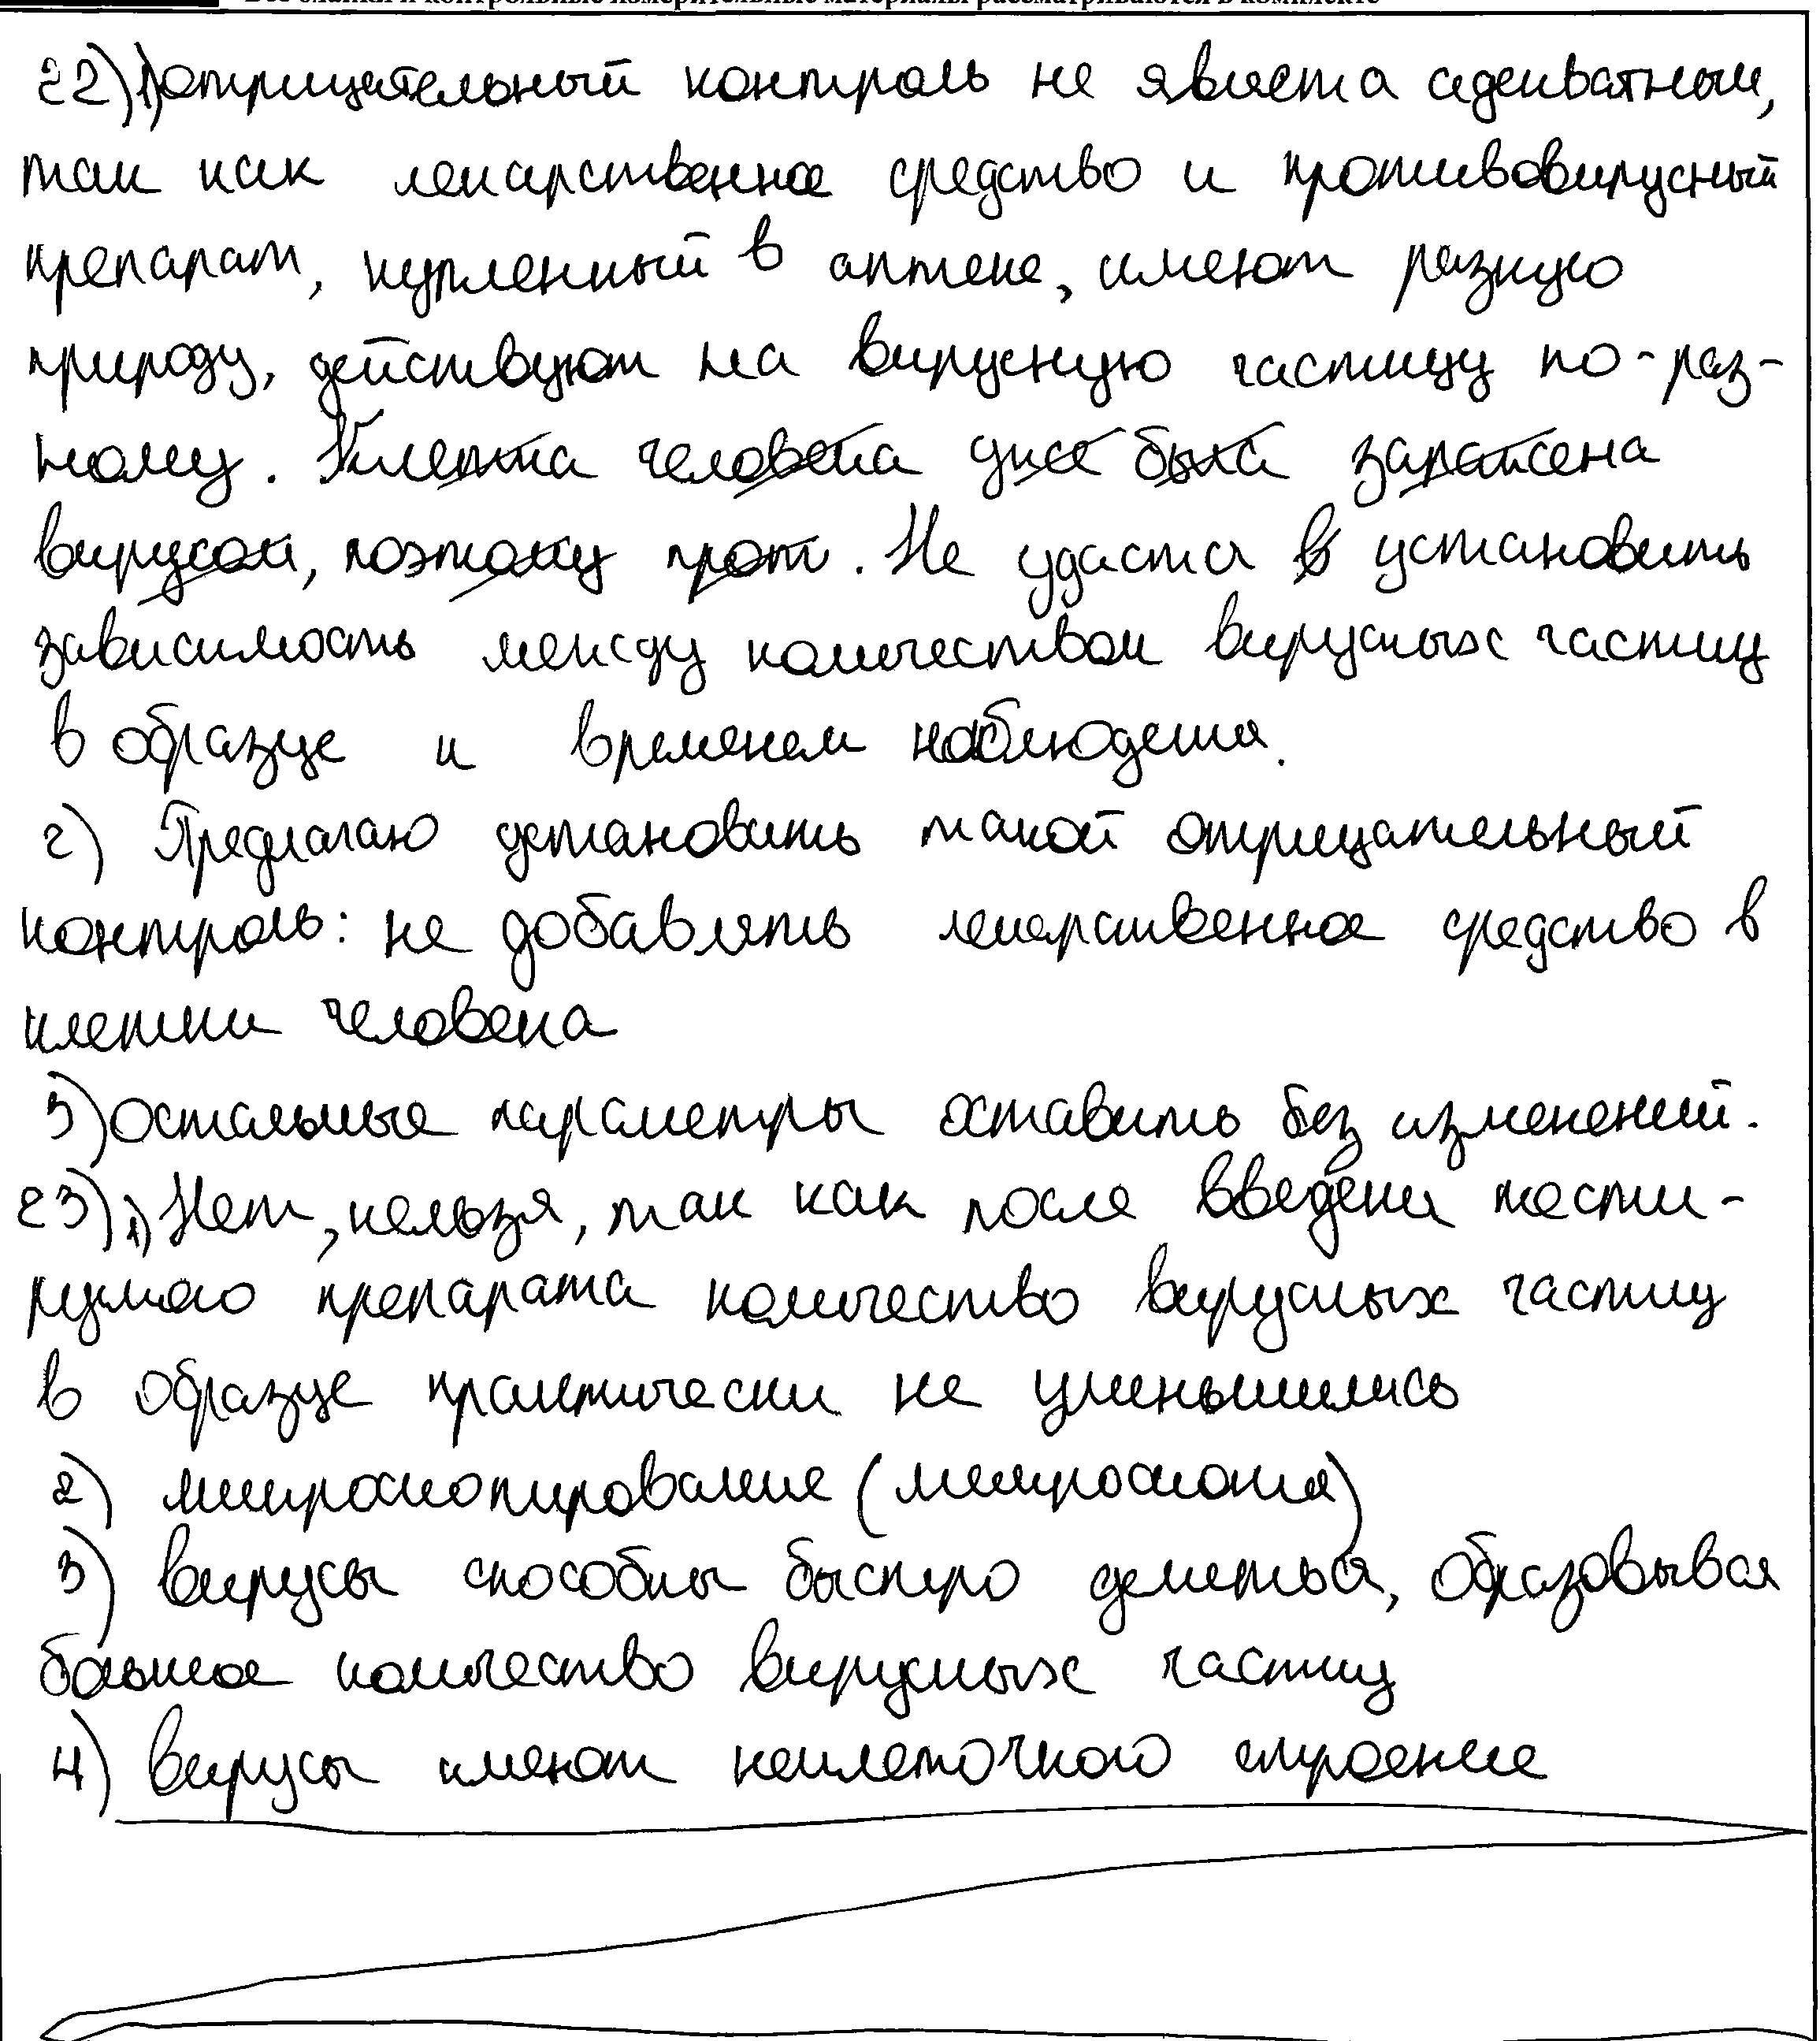 Все бланки и контрольные измерительные материалы рассматриваются в комплекте
22) 1) отрицательный контроль не является адекватным,
так как лекарственное средство и противовирусный
препарат, купленный в аптеке, имеют разную
природу, действуют на вирусную частицу по-раз-
ному. Клетка человека уже была заражена
вирусом, поэтому прот. Не удастся в установить
зависимость между количеством вирусных частиц
в образце и временем наблюдения.
2) Предлагаю установить такой отрицательный
контроль: не добавлять лекарственное средство в
клетки человека
3) Остальные параметры оставить без изменений.
23) 1) Нет, нельзя, так как после введени тести-
румого препарата количество вирусных частиц
в образце практически не уменьшилось
2) микроскопирование (микроскопия)
3) вирусы способны быстро делиться, образовывая
большое количество вирусных частиц
4) вирусы имеют неклеточного строение